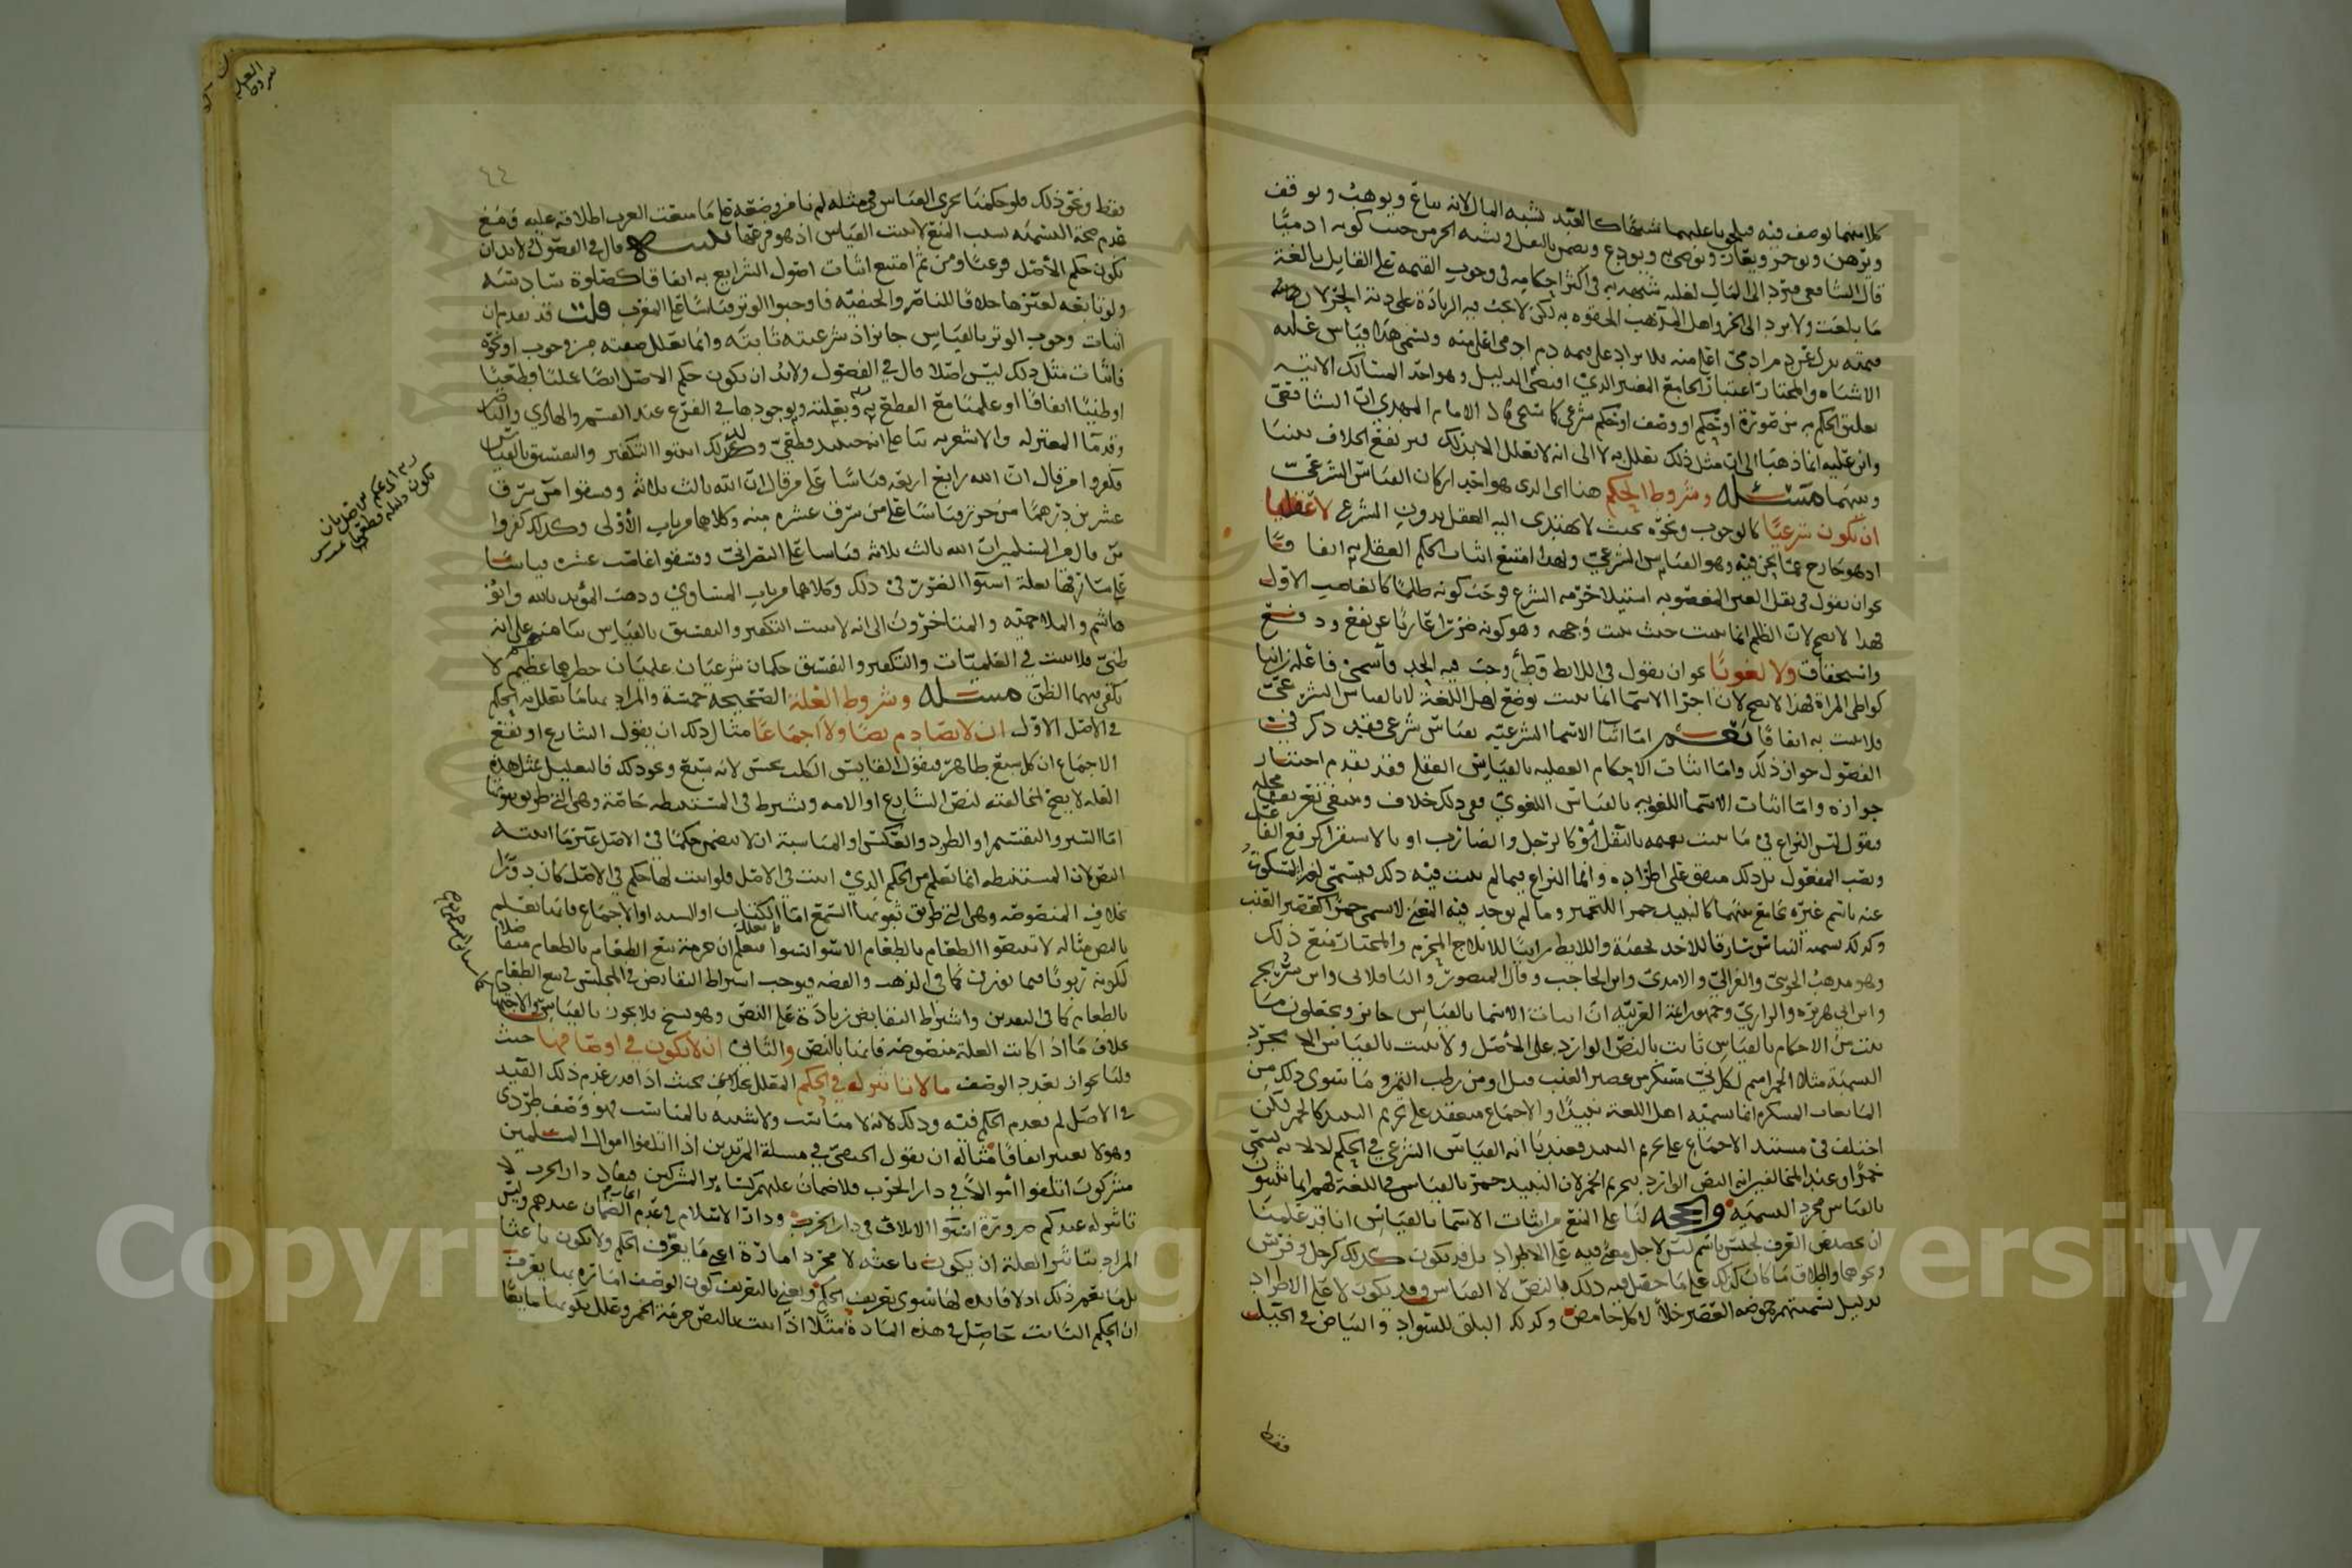 كلا منهما يوصف فيه فيلحق باعلبهما شبها كالعبد يشبه المال لانه يباع ويوهب ويوقف
ويرهن ويوجر ويعار ويوصى به ويودع ويضمن بالنقل ويشبه الحر من حيث كونه ادميا
قال الشافعي فيرد الى المال لغلبة شبهه به في اكثر احكامه في وجوب القيمة على القاتل بالغة
ما بلغت ولا يرد الى الحر واهل المذهب الحقوه به لكن لا يجب فيه الزيادة على دية الحر لان
قيمته بدل عن دم ادمي اغلى منه فلا يزاد على قيمة دم ادمي اغلى منه ويسمى هذا قياس غلبة
الاشباه والمختار اعتبار الجامع المعتبر الذي اقتضى الدليل وهو احد المسالك الاتية
تعليق الحكم به من صورة او حكم او وصف او حكم شرعي كما سيجي قال الامام المهدي ان الشافعي
وابن علية انما ذهبا الى ان مثل ذلك يعلل به لا الى انه لا يعلل الا بذلك فيرتفع الخلاف بيننا
وبينهما مسئلة وشروط الحكم هنا اي الذي هو احد اركان القياس الشرعي
ان يكون شرعيا كالوجوب ونحوه بحيث لا يهتدي اليه العقل بدون الشرع لا عقليا
اذ هو خارج عما نحن فيه وهو القياس الشرعي ولهذا امتنع اثبات الحكم العقلي به اتفاقا
نحو ان يقول في نقل العين المغصوبة استيلا حرمه الشرع فوجب كونه ظلما كالغاصب الاول
فهذا لا يصح لان الظلم انما يثبت حيث يثبت وجهه وهو كونه ضررا عاريا عن نفع ودفع
واستحقاق ولا لغويا نحو ان يقول في اللائط وطء وجب فيه الحد فاسمي فاعله زانيا
كواطي المراة فهذا لا يصح لان اجرا الاسما انما يثبت بوضع اهل اللغة لا بالقياس الشرعي
فلا يثبت به اتفاقا نعم اما اثبات الاسما الشرعية بقياس شرعي فقد ذكر في
الفصول جواز ذلك واما اثبات الاحكام العقلية بالقياس العقلي فقد تقدم اختيار
جوازه واما اثبات الاسما اللغوية بالقياس اللغوي ففي ذلك خلاف وينبغي تحرير محله
فنقول ليس النزاع في ما يثبت تعميمه بالنقل كالرجل والضارب او بالاستقرا كرفع الفاعل
ونصب المفعول بل ذلك متفق على اطراده وانما النزاع فيما لم يثبت فيه ذلك فيسمى المسكوت
عنه باسم غيره بجامع بينهما كالنبيذ خمرا للتخمير وما لم يوجد فيه المعنى لا يسمى خمرا كعصير العنب
وكذلك تسمية النباش سارقا للاخذ بخفية واللائط زانيا للايلاج المحرم والمختار منع ذلك
وهو مذهب الجويني والغزالي والامدي وابن الحاجب وقال المنصور والباقلاني وابن سريج
وابن ابي هريرة والرازي وجمهور ائمة العربية ان اثبات الاسما بالقياس جائز ويجعلون ما
يثبت من الاحكام بالقياس ثابت بالنص الوارد على الاصل ولا يثبت بالقياس الا مجرد
التسمية مثلا الخمر اسم لكل نيّ مسكر من عصير العنب قيل او من رطب التمر وما سوى ذلك من
المائعات المسكرة انما سميه اهل اللغة نبيذا والاجماع منعقد على تحريم النبيذ كالخمر لكن
اختلف في مستند الاجماع على تحريم النبيذ فعندنا انه القياس الشرعي في الحكم لا لانه يسمى
خمرا وعند المخالفين انه النص الوارد بتحريم الخمر لان النبيذ خمر بالقياس في اللغة فهم انما يثبتون
بالقياس مجرد التسمية والحجة لنا على المنع من اثبات الاسما بالقياس انا قد علمنا
ان تخصيص العرف لجنس باسم ليس لاجل معنى فيه على الاطراد بل قد يكون كذلك كرجل وفرس
ونحوهما واطلاق ما كان كذلك على ما حصل فيه ذلك بالنص لا القياس وقد يكون لا على الاطراد
بدليل تسميتهم حموضة العصير خلا لا كل حامض وكذلك البلق للسواد والبياض في الخيل
فقط
٤٤
فقط ونحو ذلك فلو حكمنا بجري القياس في مثله لم نامن وضعه على ما منعت العرب اطلاقه عليه فمع
عدم صحة التسمية بسبب المنع لا يثبت القياس اذ هو فرعها تنبيه قال في الفصول ولا بد ان
يكون حكم الاصل فرعيا ومن ثم امتنع اثبات اصول الشرايع به اتفاقا كصلوة سادسة
ولو تابعه لغيرها خلافا للناصر والحنفية فاوجبوا الوتر قياسا على المغرب قلت قد تقدم ان
اثبات وجوب الوتر بالقياس جائز اذ شرعيته ثابتة وانما تعلل صفته من وجوب او نحوه
فاثبات مثل ذلك ليس اصلا قال في الفصول ولا بد ان يكون حكم الاصل ايضا عمليا قطعيا
او ظنيا اتفاقا او علميا مع القطع به وبعلته وبوجودها في الفرع عند القسم والهادي والناصر
وقدما المعتزلة والاشعرية بناء على انه حينئذ قطعي ولذلك اثبتوا التكفير والتفسيق بالقياس
فكفروا من قال ان الله رابع اربعة قياسا على من قال ان الله ثالث ثلاثة وفسقوا من سرق
عشرين درهما من حرز قياسا على من سرق عشرة منه وكلاهما من باب الاولى وكذلك كفروا
من قال من المسلمين ان الله ثالث ثلاثة قياسا على النصراني وفسقوا غاصب عشرة قياسا
على سارقها بعلة استوا الضرر في ذلك وكلاهما من باب المساوي وذهب المؤيد بالله وابو
هاشم والملاحمية والمتاخرون الى انه لا يثبت التكفير والتفسيق بالقياس بنا منهم على انه
ظني فلا يثبت في العلميات والتكفير والتفسيق حكمان شرعيان علميان خطرهما عظيم لا
يكفي فيهما الظن مسئلة وشروط العلة الصحيحة خمسة والمراد بها ما تعلل به الحكم
في الاصل الاول ان لا تصادم نصا ولا اجماعا مثال ذلك ان يقول الشارع او يقع
الاجماع ان كل سبع طاهر فيقول القايس الكلب نجس لانه سبع ونحو ذلك فالتعليل بمثل هذه
العلة لا يصح لمخالفته لنص الشارع او الامة ويشترط في المستنبطة خاصة وهي التي طريق ثبوتها
اما السبر والتقسيم او الطرد والعكس او المناسبة ان لا تتضمن حكما في الاصل غير ما اثبته
النص لان المستنبطة انما تعلم من الحكم الذي اثبت في الاصل فلو اثبت لها حكم في الاصل كان دورا
بخلاف المنصوصة وهي التي طريق ثبوتها السمع اما الكتاب او السنة او الاجماع فانها تعلم
بالنص مثاله لا تبيعوا الطعام بالطعام الا سوا بسوا فتعلل ان حرمة بيع الطعام بالطعام متفاضلا
لكونه ربويا فيما يوزن كما في الذهب والفضة فيوجب اشتراط التقابض في المجلس في بيع الطعام
بالطعام كما في النقدين واشتراط التقابض زيادة على النص وهو نسخ فلا يجوز بالقياس الاجتهادي
بخلاف ما اذا كانت العلة منصوصة فانها بالنص والثاني ان لا تكون في اوصافها حيث
قلنا بجواز تعدد الوصف ما لا تاثير له في الحكم المعلل بخلافه بحيث اذا قدر عدم ذلك القيد
في الاصل لم يعدم الحكم فيه وذلك لانه لا مناسب ولا شبيه بالمناسب فهو وصف طردي
وهو لا يعتبر اتفاقا مثاله ان يقول الحنفي في مسئلة المرتدين اذا اتلفوا اموال المسلمين
مشركون اتلفوا اموالا في دار الحرب فلا ضمان عليهم كسائر المشركين فيقال دار الحرب لا
تاثير له عندكم ضرورة استوا الاتلاف في دار الحرب ودار الاسلام في عدم الضمان عندهم وليس
المراد بتاثير العلة ان يكون باعثة لا مجرد امارة اي ما يعرف الحكم ولا يكون باعثا
بل ما يعم ذلك اذ لا فائدة لها سوى تعريف الحكم ويعني بالتعريف كون الوصف امارة بها يعرف
ان الحكم الثابت حاصل في هذه المادة مثلا اذا ثبت بالنص حرمة الخمر وعلل بكونها مائعا